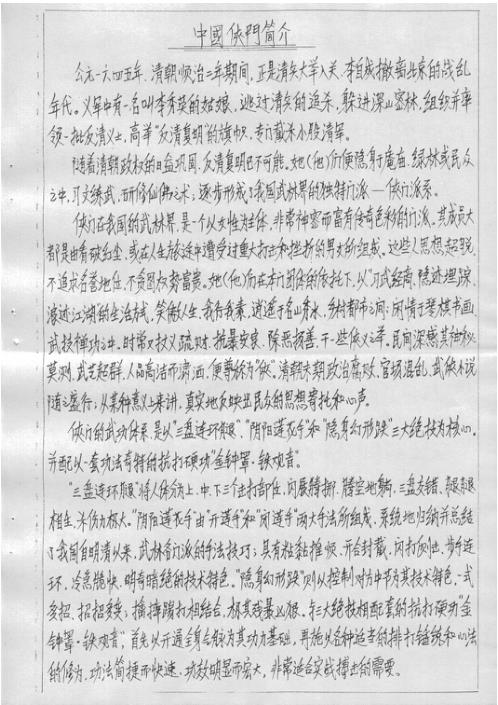 中國侠門简介
公元一六四五年，清朝顺治二年期间，正是清兵大举入关、李自成撤离北京的战乱
年代。义军中有一名叫李秀英的姑娘，逃过清兵的追杀，躲进深山密林，组织并率
领一批反清义士，高举"反清复明"的旗帜，专门截杀小股清军。
随着清朝政权的日益巩固，反清复明已不可能。她(他)们便隐身于庙庵、绿林或民众
之中，习文练武，研修仙佛之术；逐步形成了我国武林界的独特门派——侠门派系。
侠门在我国的武林界，是一个以女性为主体，非常神密而富有传奇色彩的门派。其成员大
都是由看破红尘，或在人生旅途中遭受过重大打击和挫折的男女所组成。这些人思想超脱，
不追求名誉地位，不贪图权势富贵。她(他)们在本门团体的依托下，以"习武经商、隐迹埋踪、
浪迹江湖"的生活方式，笑傲人生，我行我素，逍遥于名山秀水、乡村都市之间；闲情于琴棋书画、
武技禅功之中，时常又扶义疏财、抗暴安良、除恶扬善，干一些侠义之举。民间深感其神秘
莫测，武艺超群，人品高洁而潇洒，便尊称为"侠"。清朝末期政治腐败，官场混乱，武侠小说
随之盛行；从某种意义上来讲，真实地反映出民众的思想寄托和心声。
侠门的武功体系，是以"三盘连环腿"、"阴阳莲花手"和"隐身幻形跌"三大绝技为核心，
并配以一套功法奇特的抗打硬功"金钟罩·铁观音"。
"三盘连环腿"将人体分为上、中、下三个击打部位，闪展腾挪，腾空地躺，三盘交错，腿腿
相生，杀伤力极大。"阴阳莲花手"由"开莲手"和"闭莲手"两大手法所组成，系统地归纳并总结
了我国自明清以来，武林各门派的手法技巧；具有粘黏推烦、开合封藏、闪打侧进、步手连
环、冷急脆快、明有暗绝的技术特色。"隐身幻形跌"则以控制对方中节为其技术特色，一式
多招，招招多变；擒摔踢打相结合，极其残暴凶狠。与三大绝技相配套的抗打硬功"金
钟罩·铁观音"，首先以开通全身经脉为其功力基础，再施以各种适当的排打锻练和心法
的修为，功法简捷而快速，功效明显而宏大，非常适合实战搏击的需要。